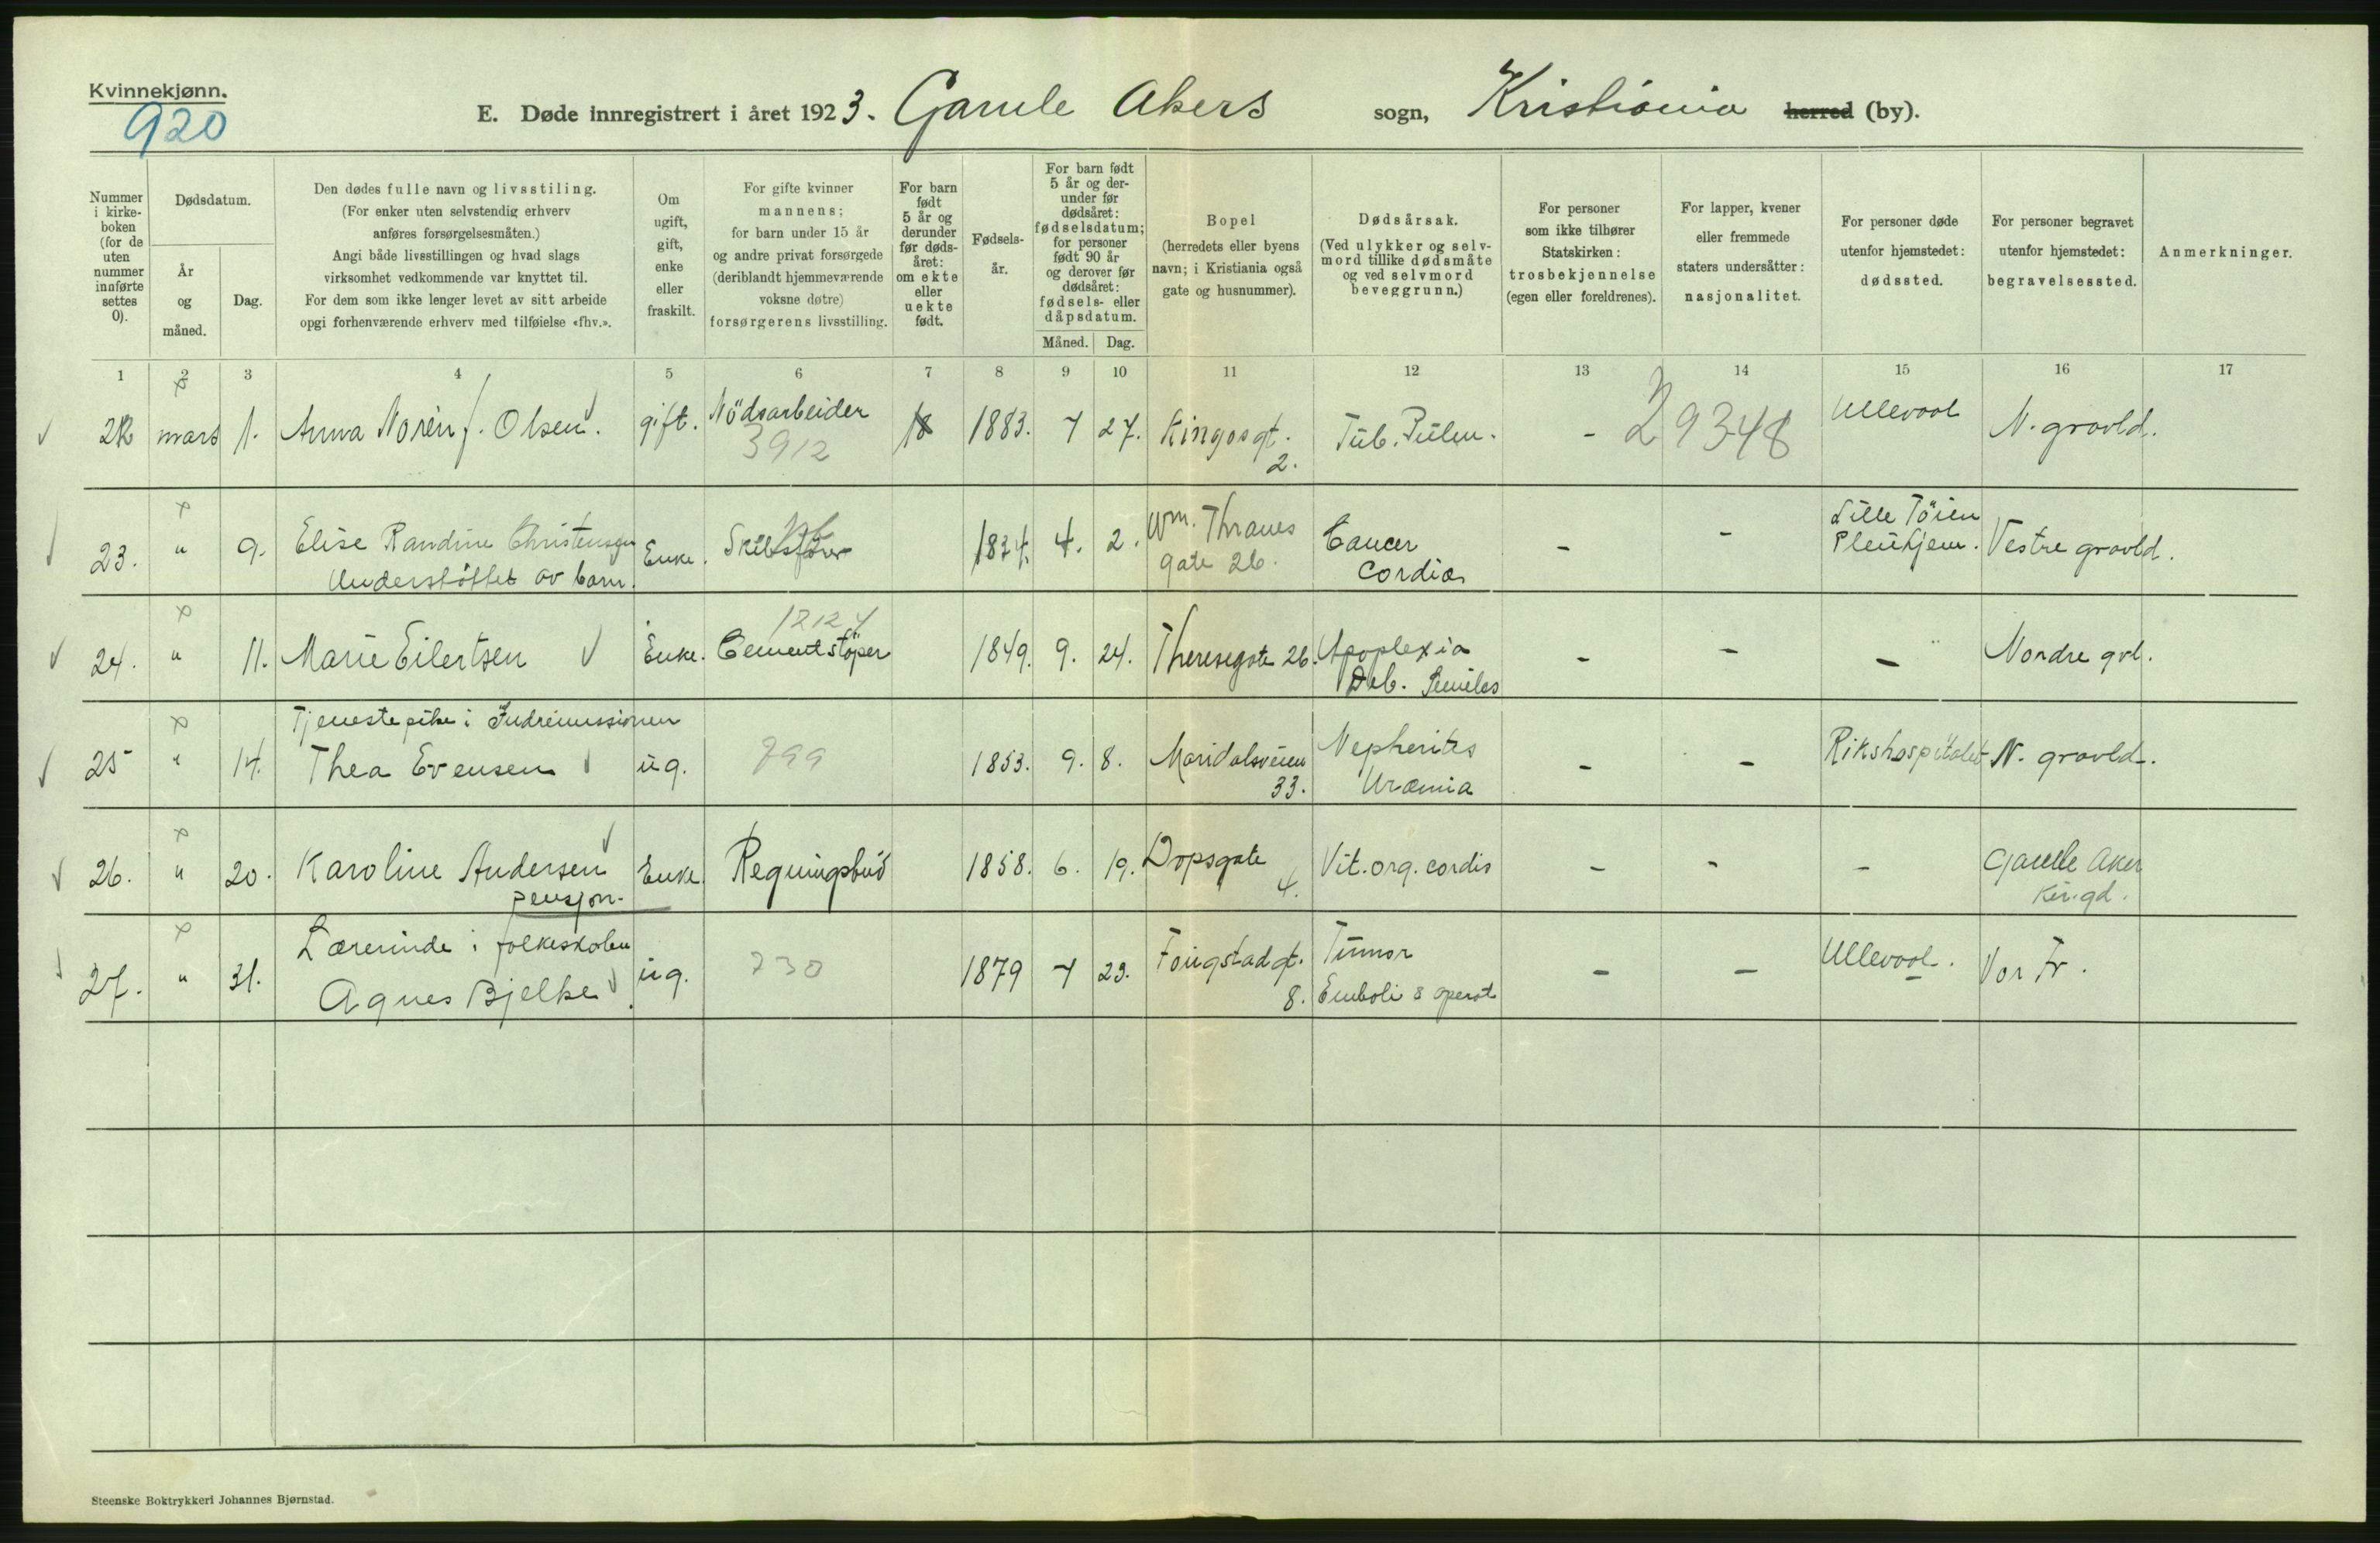 Kvinnekjønn.
920
E. Døde innregistrert i året 1923. Gamle Akers sogn, Kristiania herred (by).
Nummer i kirke-boken (for de uten nummer innførte settes 0).
Dødsdatum.
År og måned.
Dag.
Den dødes fulle navn og livsstiling.
(For enker uten selvstendig erhverv
anføres forsørgelsesmåten.)
Angi både livsstillingen og hvad slags
virksomhet vedkommende var knyttet til.
For dem som ikke lenger levet av sitt arbeide
opgi forhenværende erhverv med tilføielse «fhv.».
Om ugift, gift, enke eller fraskilt.
For gifte kvinner
mannens;
for barn under 15 år
og andre privat forsørgede
(deriblandt hjemmeværende
voksne døtre)
forsørgerens livsstilling.
For barn født 5 år og derunder før døds-året: om ekte eller uekte født.
Fødsels-år.
For barn født 5 år og der-under før dødsåret: fødselsdatum; for personer født 90 år og derover før dødsåret: fødsels- eller dåpsdatum.
Måned. Dag.
Bopel
(herredets eller byens
navn; i Kristiania også
gate og husnummer).
Dødsårsak.
(Ved ulykker og selv-
mord tillike dødsmåte
og ved selvmord
beveggrunn.)
For personer
som ikke tilhører
Statskirken:
trosbekjennelse
(egen eller foreldrenes).
For lapper, kvener
eller fremmede
staters undersåtter:
nasjonalitet.
For personer døde
utenfor hjemstedet:
dødssted.
For personer begravet
utenfor hjemstedet:
begravelsessted.
Anmerkninger.
1 2 3 4 5 6 7 8 9 10 11 12 13 14 15 16 17
22 mars 1. Anna Norén f. Olsen. gift. Nödsarbeider 18 1883. 7 27. Kingosgt. 2. Tub. Pulm. - 29348 Ullevaal N. gravld.
3912
23. " 9. Elise Randine Christensen Enke. Skibsfører 1834. 4. 2. Wm. Thranes gate 26. Cancer Cordia - - Lille Töien Pleiehjem. Vestre gravld.
Understöttet av barn.
12124
24. " 11. Marie Eilertsen Enke. Cementstöper 1849. 9. 24. Theresegate 26. Apoplexia Deb. Seniles - - - Nordre gvl.
Tjenestepike i Indremissionen
25 " 14. Thea Evensen ug. 799 1853. 9. 8. Maridalsveien 33. Nepherites Uræmia - - Rikshospitalet N. gravld.
26. " 20. Karoline Andersen Enke. Regningsbud 1858. 6. 19. Dopsgate 4. Vit. org. cordis - - - Gamle Aker Kir.gd.
pensjon.
Lærerinde i folkeskolen
27. " 31. Agnes Bjelke ug. 730 1879 7 23. Fougstadgt. 8. Tumor Emboli operat - - Ullevaal. Vor Fr.
Steenske Boktrykkeri Johannes Bjørnstad.